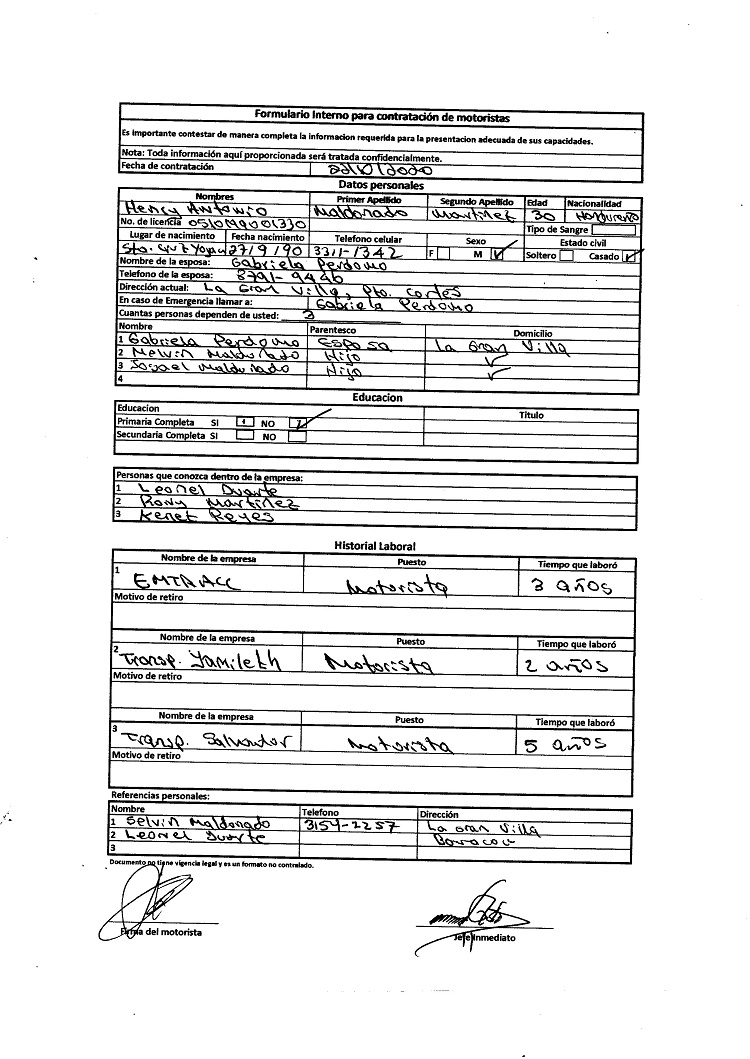 Formulario Interno para contratación de motoristas
Es importante contestar de manera completa la informacion requerida para la presentacion adecuada de sus capacidades.
Nota: Toda información aquí proporcionada será tratada confidencialmente.
Fecha de contratación
Datos personales
Nombres Primer Apellido Segundo Apellido Edad Nacionalidad
Henry Antonio Maldonado Martinez 30 Hondureño
No. de licencia 0510199001330 Tipo de Sangre
Lugar de nacimiento Fecha nacimiento Telefono celular Sexo Estado civil
Sta. Cruz Yojoa 27/9/90 3311-1342 F M Soltero Casado
Nombre de la esposa: Gabriela Perdomo
Telefono de la esposa: 8791-9446
Dirección actual: La Gran Villa, Pto. Cortes
En caso de Emergencia llamar a: Gabriela Perdomo
Cuantas personas dependen de usted: 3
Nombre Parentesco Domicilio
1 Gabriela Perdomo Esposa La Gran Villa
2 Melvin Maldonado Hijo
3 Maldonado Hijo
4
Educacion
Educacion Titulo
Primaria Completa SI NO
Secundaria Completa SI NO
Personas que conozca dentro de la empresa:
1 Leonel Duarte
2 Rony Martinez
3 Kenet Reyes
Historial Laboral
Nombre de la empresa Puesto Tiempo que laboró
1 EMTRACC Motorista 3 años
Motivo de retiro
Nombre de la empresa Puesto Tiempo que laboró
2 Transp. Yamileth Motorista 2 años
Motivo de retiro
Nombre de la empresa Puesto Tiempo que laboró
3 Transp. Salvador Motorista 5 años
Motivo de retiro
Referencias personales:
Nombre Telefono Dirección
1 Selvin Maldonado 3154-2257 La Gran Villa
2 Leonel Duarte
3
Documento no tiene vigencia legal y es un formato no controlado.
Firma del motorista Jefe Inmediato